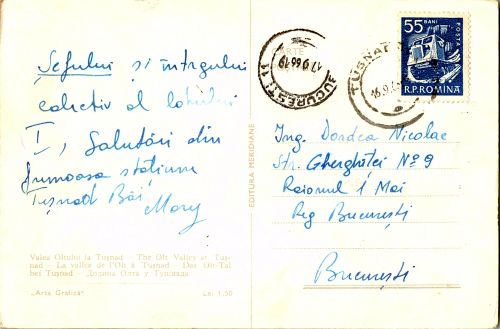 Șefului și întregului
colectiv al lotului
I, Salutări din
frumoasa stațiune
Tușnad Băi
Mary
Valea Oltului la Tușnad - The Olt Valley at Tuș-
nad - La vallée de l'Olt à Tușnad - Das Olt-Tal
bei Tușnad - Долина Олта у Тушнада
„Arta Grafică"
Lei 1,50
EDITURA MERIDIANE
BUCUREȘTI 11
TUȘNAD
55 BANI
POSTA
R.P.ROMINA
Ing. Dordea Nicolae
Str. Gherghiței Nº 9
Raionul 1 Mai
Reg București
București